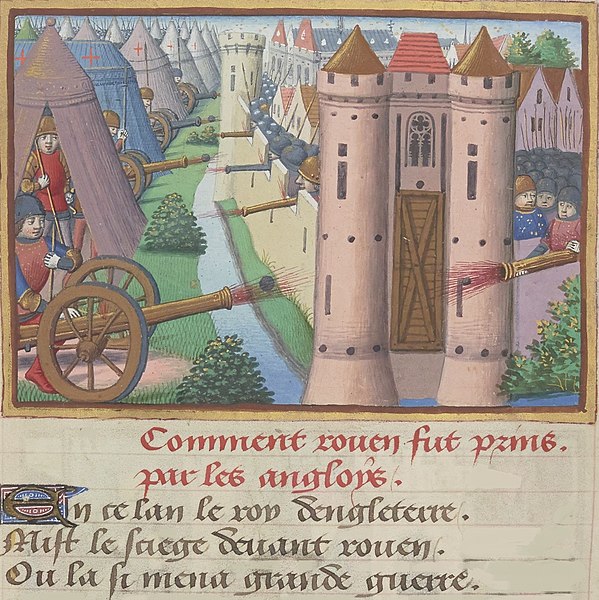 Comment rouen fut prins.
par les angloys.
En ce lan le roy dengleterre.
Mist le siege deuant rouen.
Ou la si mena grande guerre.